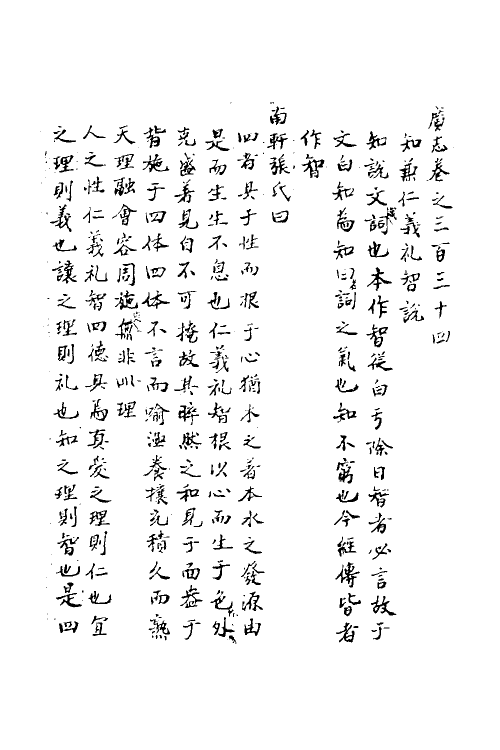 廣志卷之三百三十四
知兼仁義礼智說
知說文詞也本作智從白亏除曰智者必言故于
文白知為知曰詞之氣也知不窮也今經傳皆者
作智
南軒張氏曰
四者具于性而根于心猶木之著本水之發源由
是而生生不息也仁義礼智根以心而生于色外
克盛著見自不可掩故其睟然之和見于面盎于
背施于四体四体不言而喻涵養擴充積久而熟
天理融會容周施無非此理
人之性仁義礼智四德具焉其愛之理則仁也宜
之理則義也讓之理則礼也知之理則智也是四